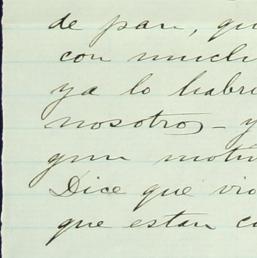 de pan, qu
con much
ya lo habr
nosotros - y
gun moti
Dice que vio
que estan co